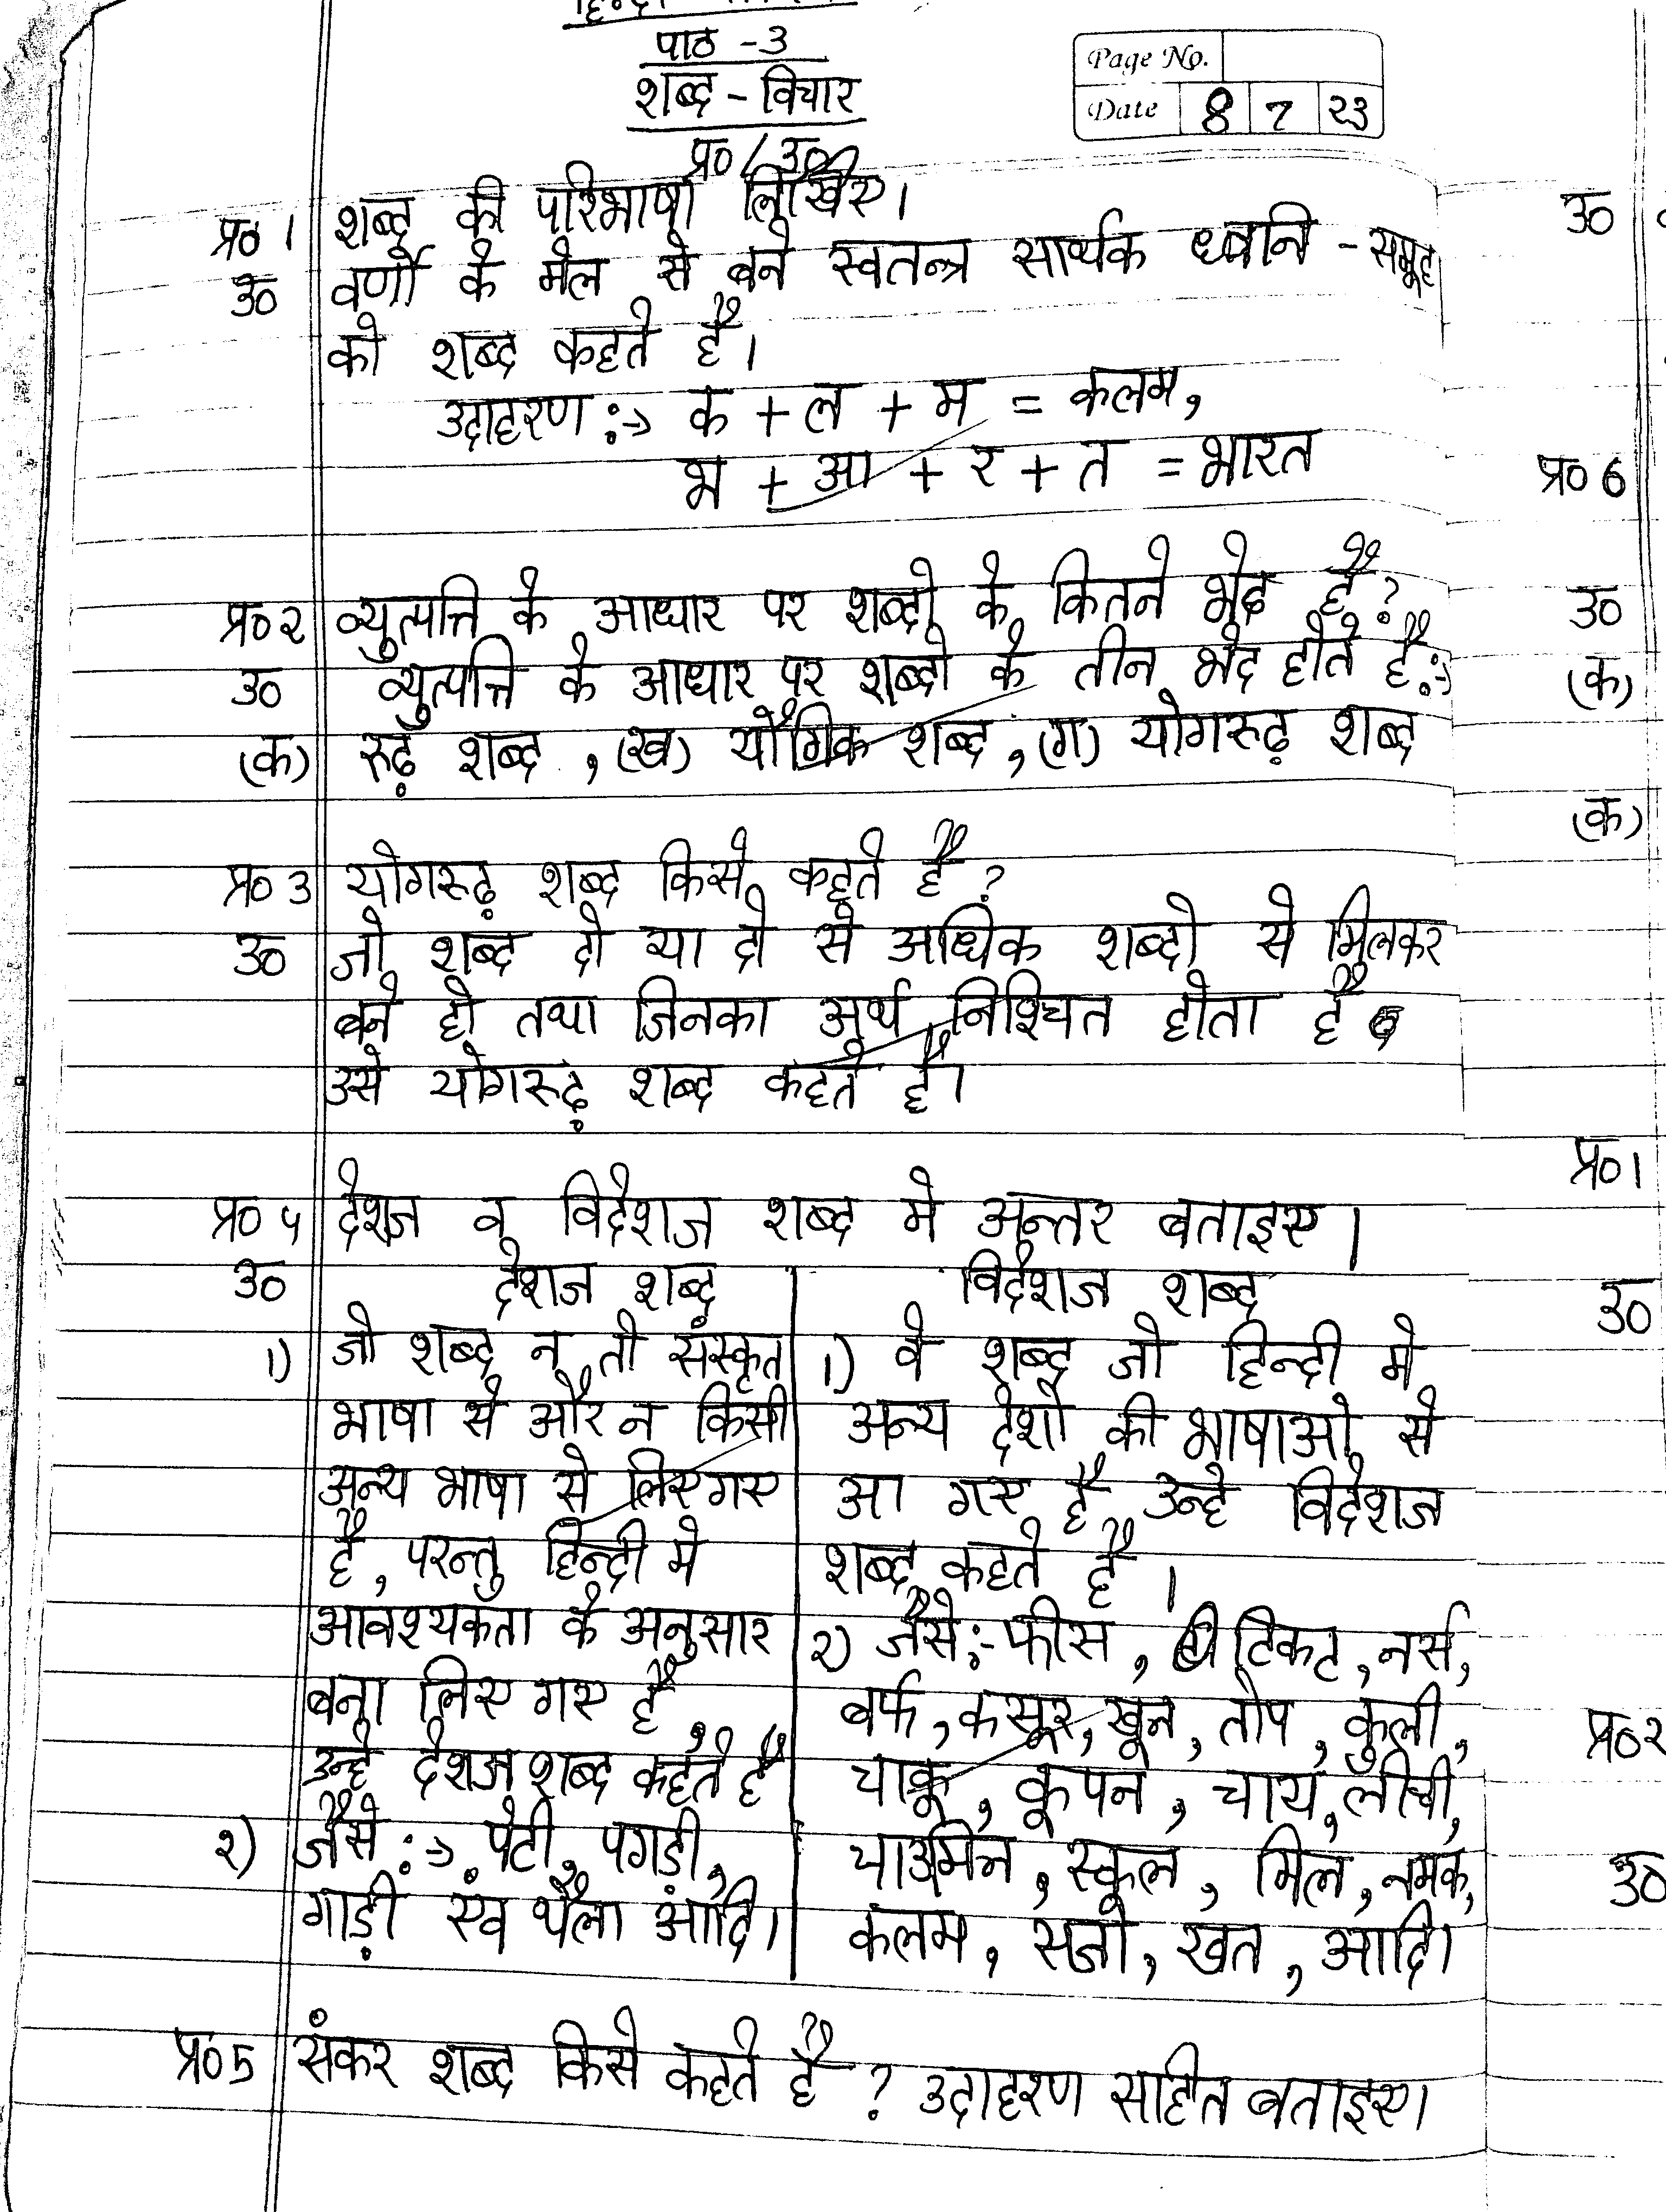 पाठ -3
शब्द - विचार
Page No.
Date 8 7 23
प्र० / उ०
प्र० 1 शब्द की परिभाषा लिखिए।
उ० वर्णो के मेल से बने स्वतन्त्र सार्थक ध्वनि - समूह
को शब्द कहते है।
उदाहरण :-> क + ल + म = कलम,
भ + आ + र + त = भारत
प्र० २ व्युत्पत्ति के आधार पर शब्दो के कितने भेद है?
उ० व्युत्पत्ति के आधार पर शब्दो के तीन भेद होते है:->
(क) रूढ़ शब्द , (ख) यौगिक शब्द , (ग) योगरूढ़ शब्द
प्र० 3 योगरूढ़ शब्द किसे कहते है ?
उ० जो शब्द दो या दो से अधिक शब्दो से मिलकर
बने हो तथा जिनका अर्थ निश्चित होता है
उसे योगरूढ़ शब्द कहते है।
प्र० ५ देशज व विदेशज शब्द मे अन्तर बताइए।
उ० देशज शब्द विदेशज शब्द
1) जो शब्द न तो संस्कृत
भाषा से और न किसी
अन्य भाषा से लिए गए
है, परन्तु हिन्दी मे
आवश्यकता के अनुसार
बना लिए गए है,
उन्हे देशज शब्द कहते है
२) जैसे :-> पेटी, पगड़ी,
गाड़ी एंव थैला आदि।
1) वे शब्द जो हिन्दी मे
अन्य देशो की भाषाओ से
आ गए है, उन्हे विदेशज
शब्द कहते है ।
२) जैसे:- फीस, टिकट, नर्स,
बर्फ, कसूर, खून, तोप, कुली,
चाकू, कूपन, चाय, लीची,
चाउमिन, स्कूल, मिल, नमक,
कलम, सजा, खत, आदि।
प्र० 5 संकर शब्द किसे कहते है ? उदाहरण सहित बताइए।
उ०
प्र० 6
उ०
(क)
(क)
प्र० 1
उ०
प्र० २
उ०